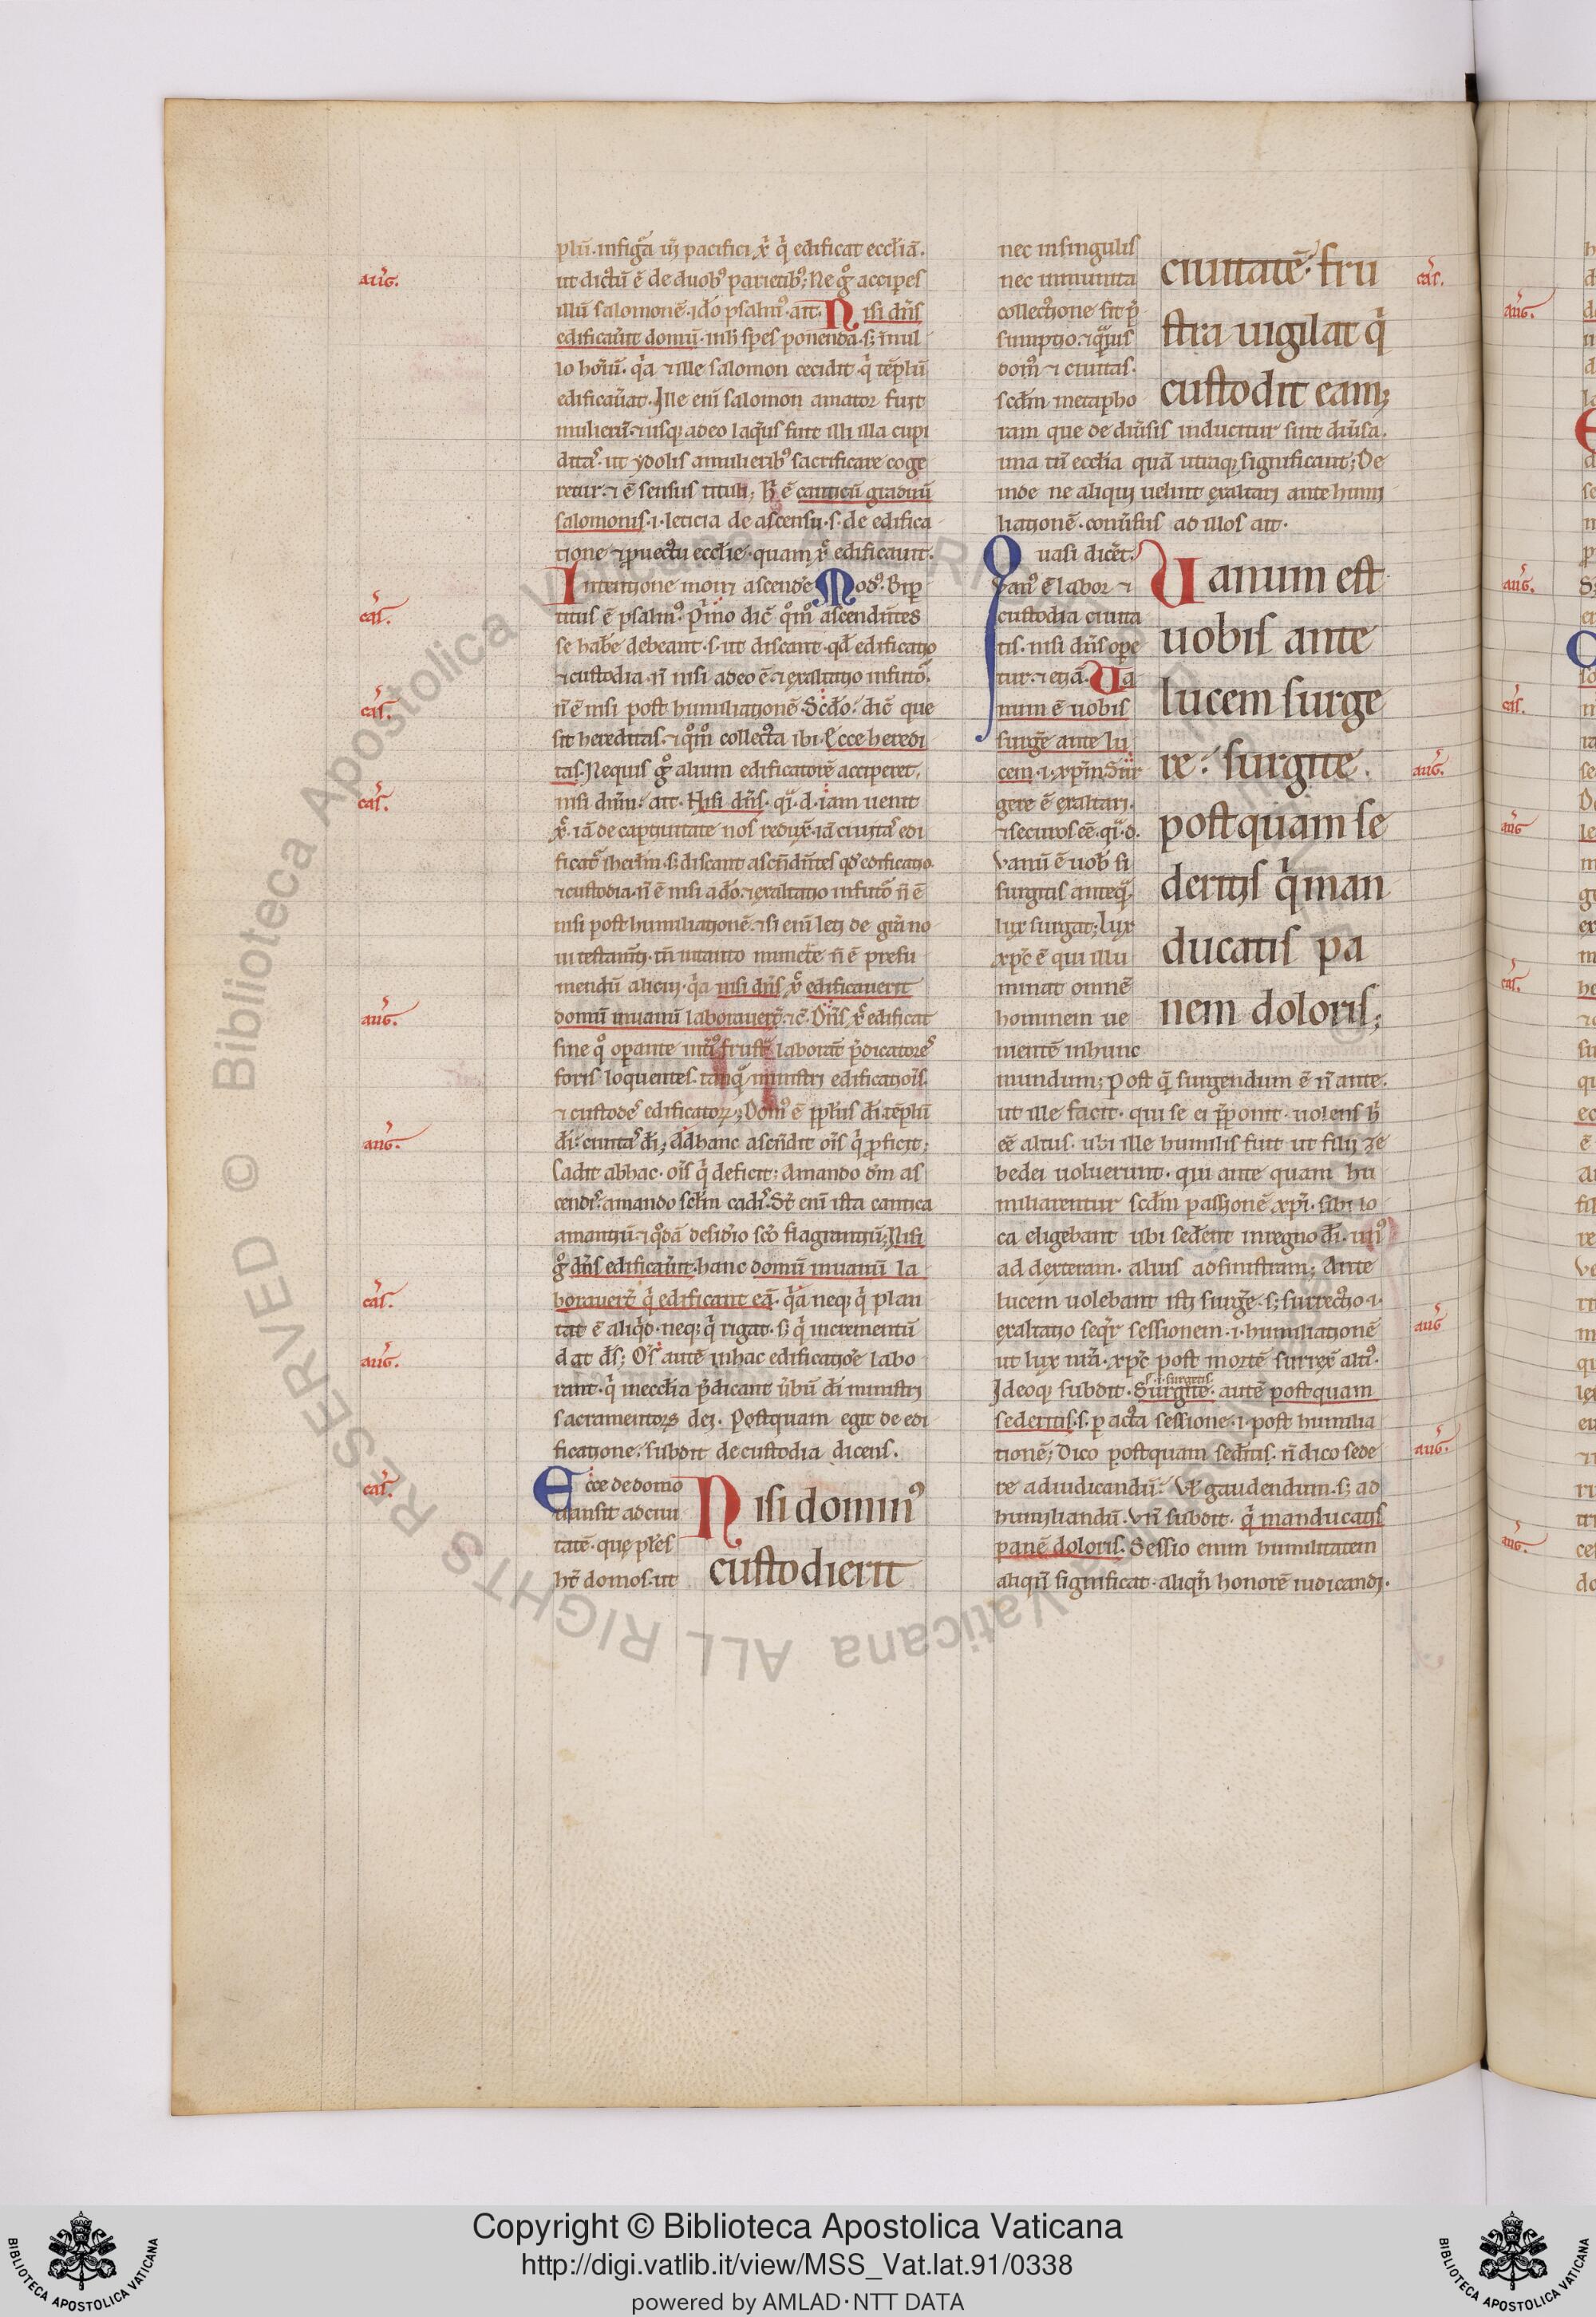 plū. in figa͛ ur̄ pacifici xp̄ q̄ edificat eccl̄iā.
ut dictū ē de duobꝰ parietibꝰ; Ne g͛ acciꝑes
illū salomonē. ido psalmꝰ. ait. Nisi dn̄s
edificau͛it domū. in h̄ spes ponenda. sꝫ in nul
lo hoīū. qa et ille salomon cecidit q̄ tēplū
edificau͛at. Ille eni salomon amator fuit
mulierū. et usqꝫ adeo laq̄us fuit illi illa cupi
ditaſ. ut ydolis a mulieribꝰ sacrificare coge
retur. et ē sensus tituli; h̄ ē canticū graduū
salomonis .i. leticia de ascensu .s. de edifica
tione et ꝓuectu eccl̄ie. quam xp̄ edificauit.
Intentione monꝫ ascende͛ Modꝰ. Biꝑ
titus ē psalmꝰ. P̄mo dic̄ qm̄o ascendūtes
se habe͛ debeant. s. ut discant. qd̄ edificatio
et custodia. n̄ nisi a deo ē. et exaltatio in futo͛.
n̄ ē nisi post humiliationē. Scd̄o. dic̄ que
sit hereditas. et qm̄o collecta ibi. Ecce heredi
tas. Ne quis g͛ alium edificatorē acciperet.
nisi dn̄m. ait. Nisi dn̄s. qͣ. d. iam uenit
xp̄. iā de captiuitate nos redux̄. iā ciuitaſ edi
ficat͛ ihrl̄m. sꝫ discant ascēdētes qd̄ edificatio
et custodia. n̄ ē nisi a do͛. et exaltatio in futo͛ n̄ ē
nisi post humiliationē. et si eni leti de gr̄a no
ui testam̄ti. tn̄ in tanto munere n̄ ē presu
mendū alicui. qa nisi dn̄s xp̄ edificauerit
domū in uanū laborauer̄t. et c̄. Dn̄s xp̄ edificat
sine q̊ oꝑante intꝰ frust͛ laborāt p̄dicatoreſ
foris loquentes. tanqͣ ministri edificatiōis.
et custodeſ edificatorꝫ; Domꝰ ē ppl̄us dī. tēplū
dī. ciuitaſ dī; Ad hanc ascēdit oīs q̄ ꝓficit;
Cadit ab hac. oīs q̄ deficit; amando dm̄ as
cendiſ. amando scl̄m cadiſ. St̄ eni ista cantica
amantiū. et qodā desidio sc̄o flagrantiū; Nisi
g͛ dn̄s edificau͛it hanc domū in uanū la
borauer̄t q̄ edificant eā. qa neqꝫ q̄ plan
tat ē aliqd̄. neqꝫ q̄ rigat. sꝫ q̄ incrementū
dat ds̄; Oſ͛ autē in hac edificatiōe labo
rant. q̄ in eccl̄ia p̄dicant ūbū dī ministri
sacramentorꝫ dei. Postquam egit de edi
ficatione. subdit de custodia dicens.
Ecce de domo
transit ad ciui
tatē. que ples͛
ht̄ domos. ut
Nisi dominꝰ
custodierit
nec in singulis
nec in munita
collectione sit p̄
sumptio. et quāuis
domꝰ et ciuitas.
scd̄m metapho
ciuitatē. fru
stra uigilat q̄
custodit eam;
ram que de diu͛sis inducitur sint diu͛sa.
una tn̄ eccl̄ia quā utraqꝫ significant; De
inde ne aliqui uelint exaltari ante humi
liationē. conu͛sus ad illos ait.
Quasi dicet͛.
Vanꝰ ē labor et
custodia ciuita
tis. nisi dn̄s oꝑe
tur. et etiā. Ua
num ē uobis
surge͛ ante lu
cem .i. xpm̄. Sur
gere ē exaltari.
et securos eē. qͣ. d.
Vanū ē uob̄ si
surgitis anteqͣ.
lux surgat; Lux
xpc̄ ē qui illu
minat omnē
hominem ue
nientē in hunc
Uanum est
uobis ante
lucem surge
re. surgite.
postquam se
deritis q̄ man
ducatis pa
nem doloris;
mundum; Post qͣ surgendum ē n̄ ante.
ut ille facit. qui se ei p̄ponit. uolens h̄
eē altus. ubi ille humilis fuit ut filii ze
bedei uoluerunt. qui ante quam hu
miliarentur scd̄m passionē xpī. sibi lo
ca eligebant ubi sede͛nt in regno dī. unꝰ
ad dexteram. alius ad sinistram; Ante
lucem uolebant isti surge͛. sꝫ surrectio .i.
exaltatio seq̄r sessionem .i. humiliationē
ut lux nr̄a. xpc̄ post mortē surrex̄ altꝰ.
s. i. surgetis.
Ideoqꝫ subdit. Surgite. autē postquam
sederitis. s. ꝑacta sessione .i. post humilia
tionē; Dico postquam sed͛itis. n̄ dico sede
re ad iudicandū. uel gaudendum. sꝫ ad
humiliandū. Vn̄ subdit. q̄ manducatis
panē doloris. Sessio enim humilitatem
aliqn̄ significat. aliqn̄ honorē iudicandi.
aug.
cas.
cas.
cas.
aug.
aug.
cas.
aug.
cas.
cas.
aug.
aug
aug.
Copyright © Biblioteca Apostolica Vaticana
http://digi.vatlib.it/view/MSS_Vat.lat.91/0338
powered by AMLAD·NTT DATA
BIBLIOTECA APOSTOLICA VATICANA
BIBLIOTECA APOSTOLICA VATICANA